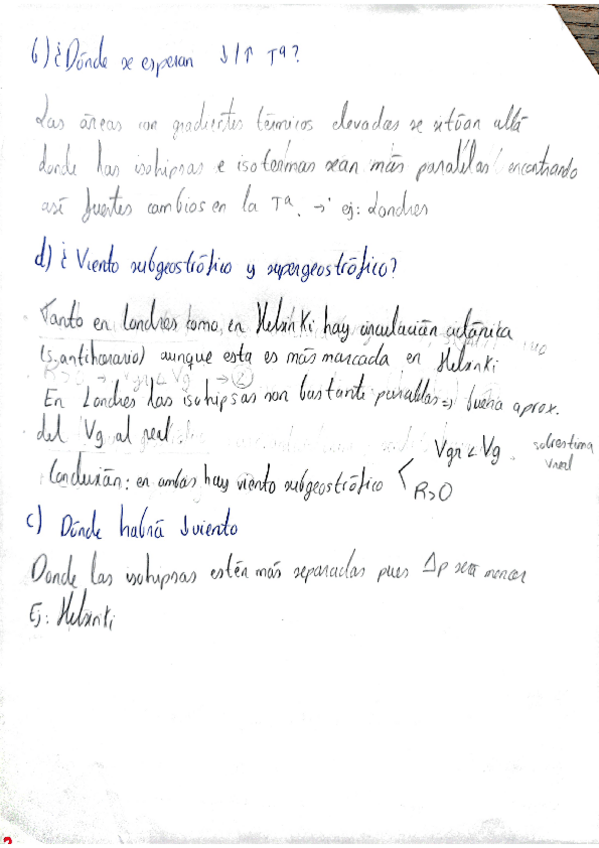 b) ¿Dónde se esperan ↓/↑ Tª?
Las áreas con gradientes térmicos elevadas se sitúan allá
donde las isohipsas e isotermas sean más paralelas encontrando
así fuertes cambios en la Tª. → ej: Londres
d) ¿Viento subgeostrófico y supergeostrófico?
Tanto en Londres como en Helsinki hay circulación ciclónica
(s. antihorario) aunque esta es más marcada en Helsinki
En Londres las isohipsas son bastante paralelas ⇒ buena aprox.
del Vg al real
Vgr < Vg. sobrestima
Vreal
Conclusión: en ambas hay viento subgeostrófico < R>0
c) Dónde habrá ↓viento
Donde las isohipsas estén más separadas pues Δp será menor
Ej: Helsinki
2